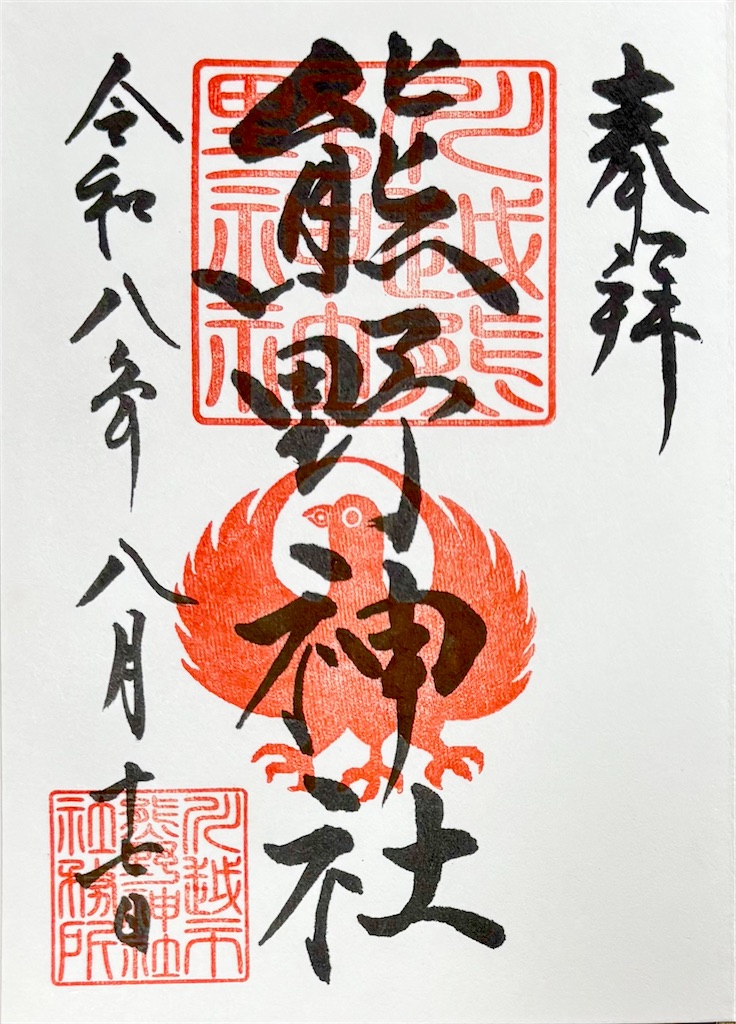 奉拝
川越熊
野神社
熊野神社
令和八年八月十七日
川越市
熊野神社
社務所